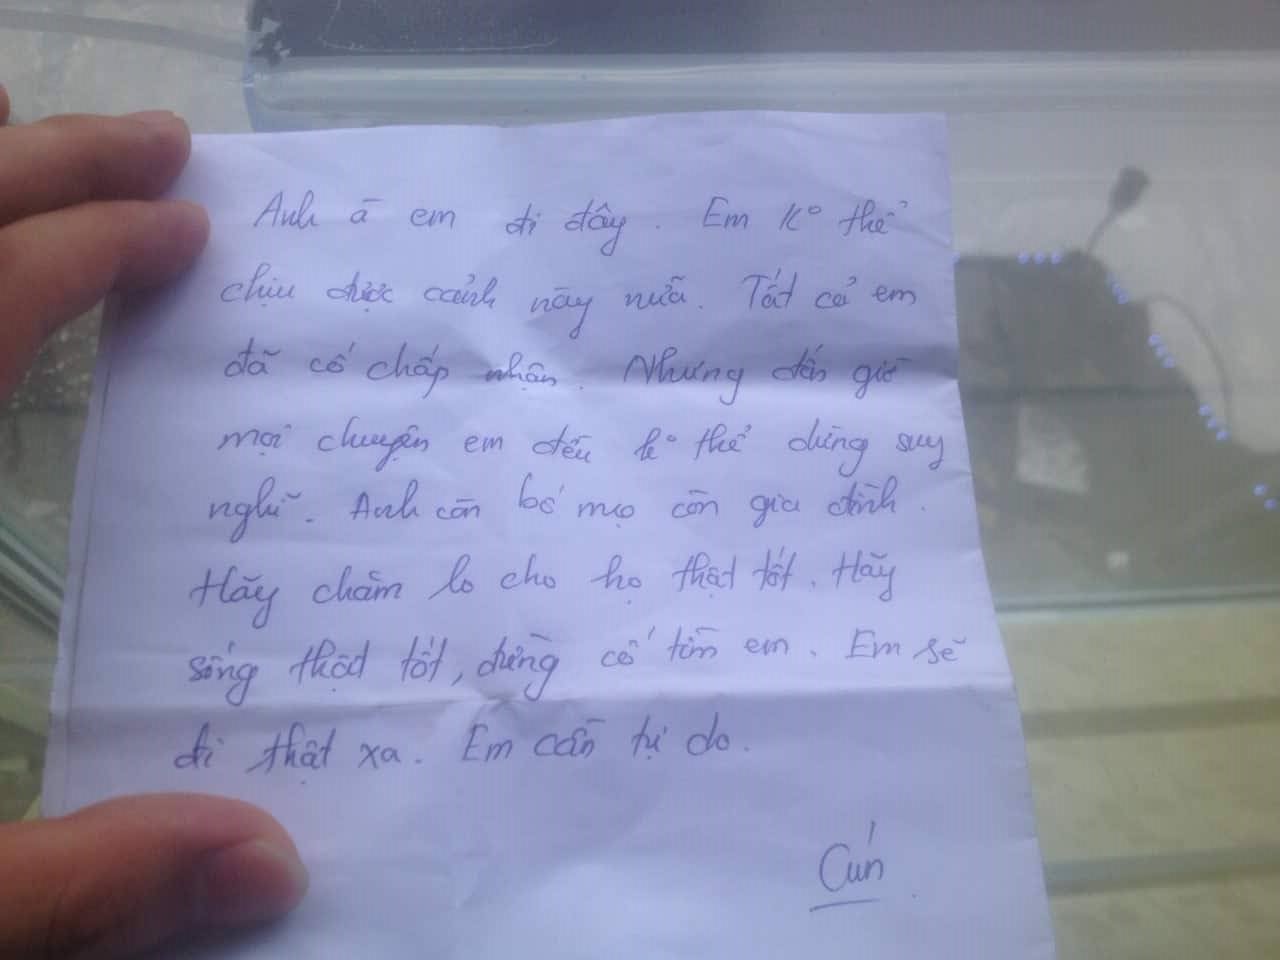 Anh à em đi đây. Em k° thể
chịu được cảnh này nữa. Tất cả em
đã cố chấp nhận. Nhưng đến giờ
mọi chuyện em đều k° thể dừng suy
nghĩ. Anh còn bố mẹ còn gia đình.
Hãy chăm lo cho họ thật tốt. Hãy
sống thật tốt, đừng cố tìm em. Em sẽ
đi thật xa. Em cần tự do.
Cún